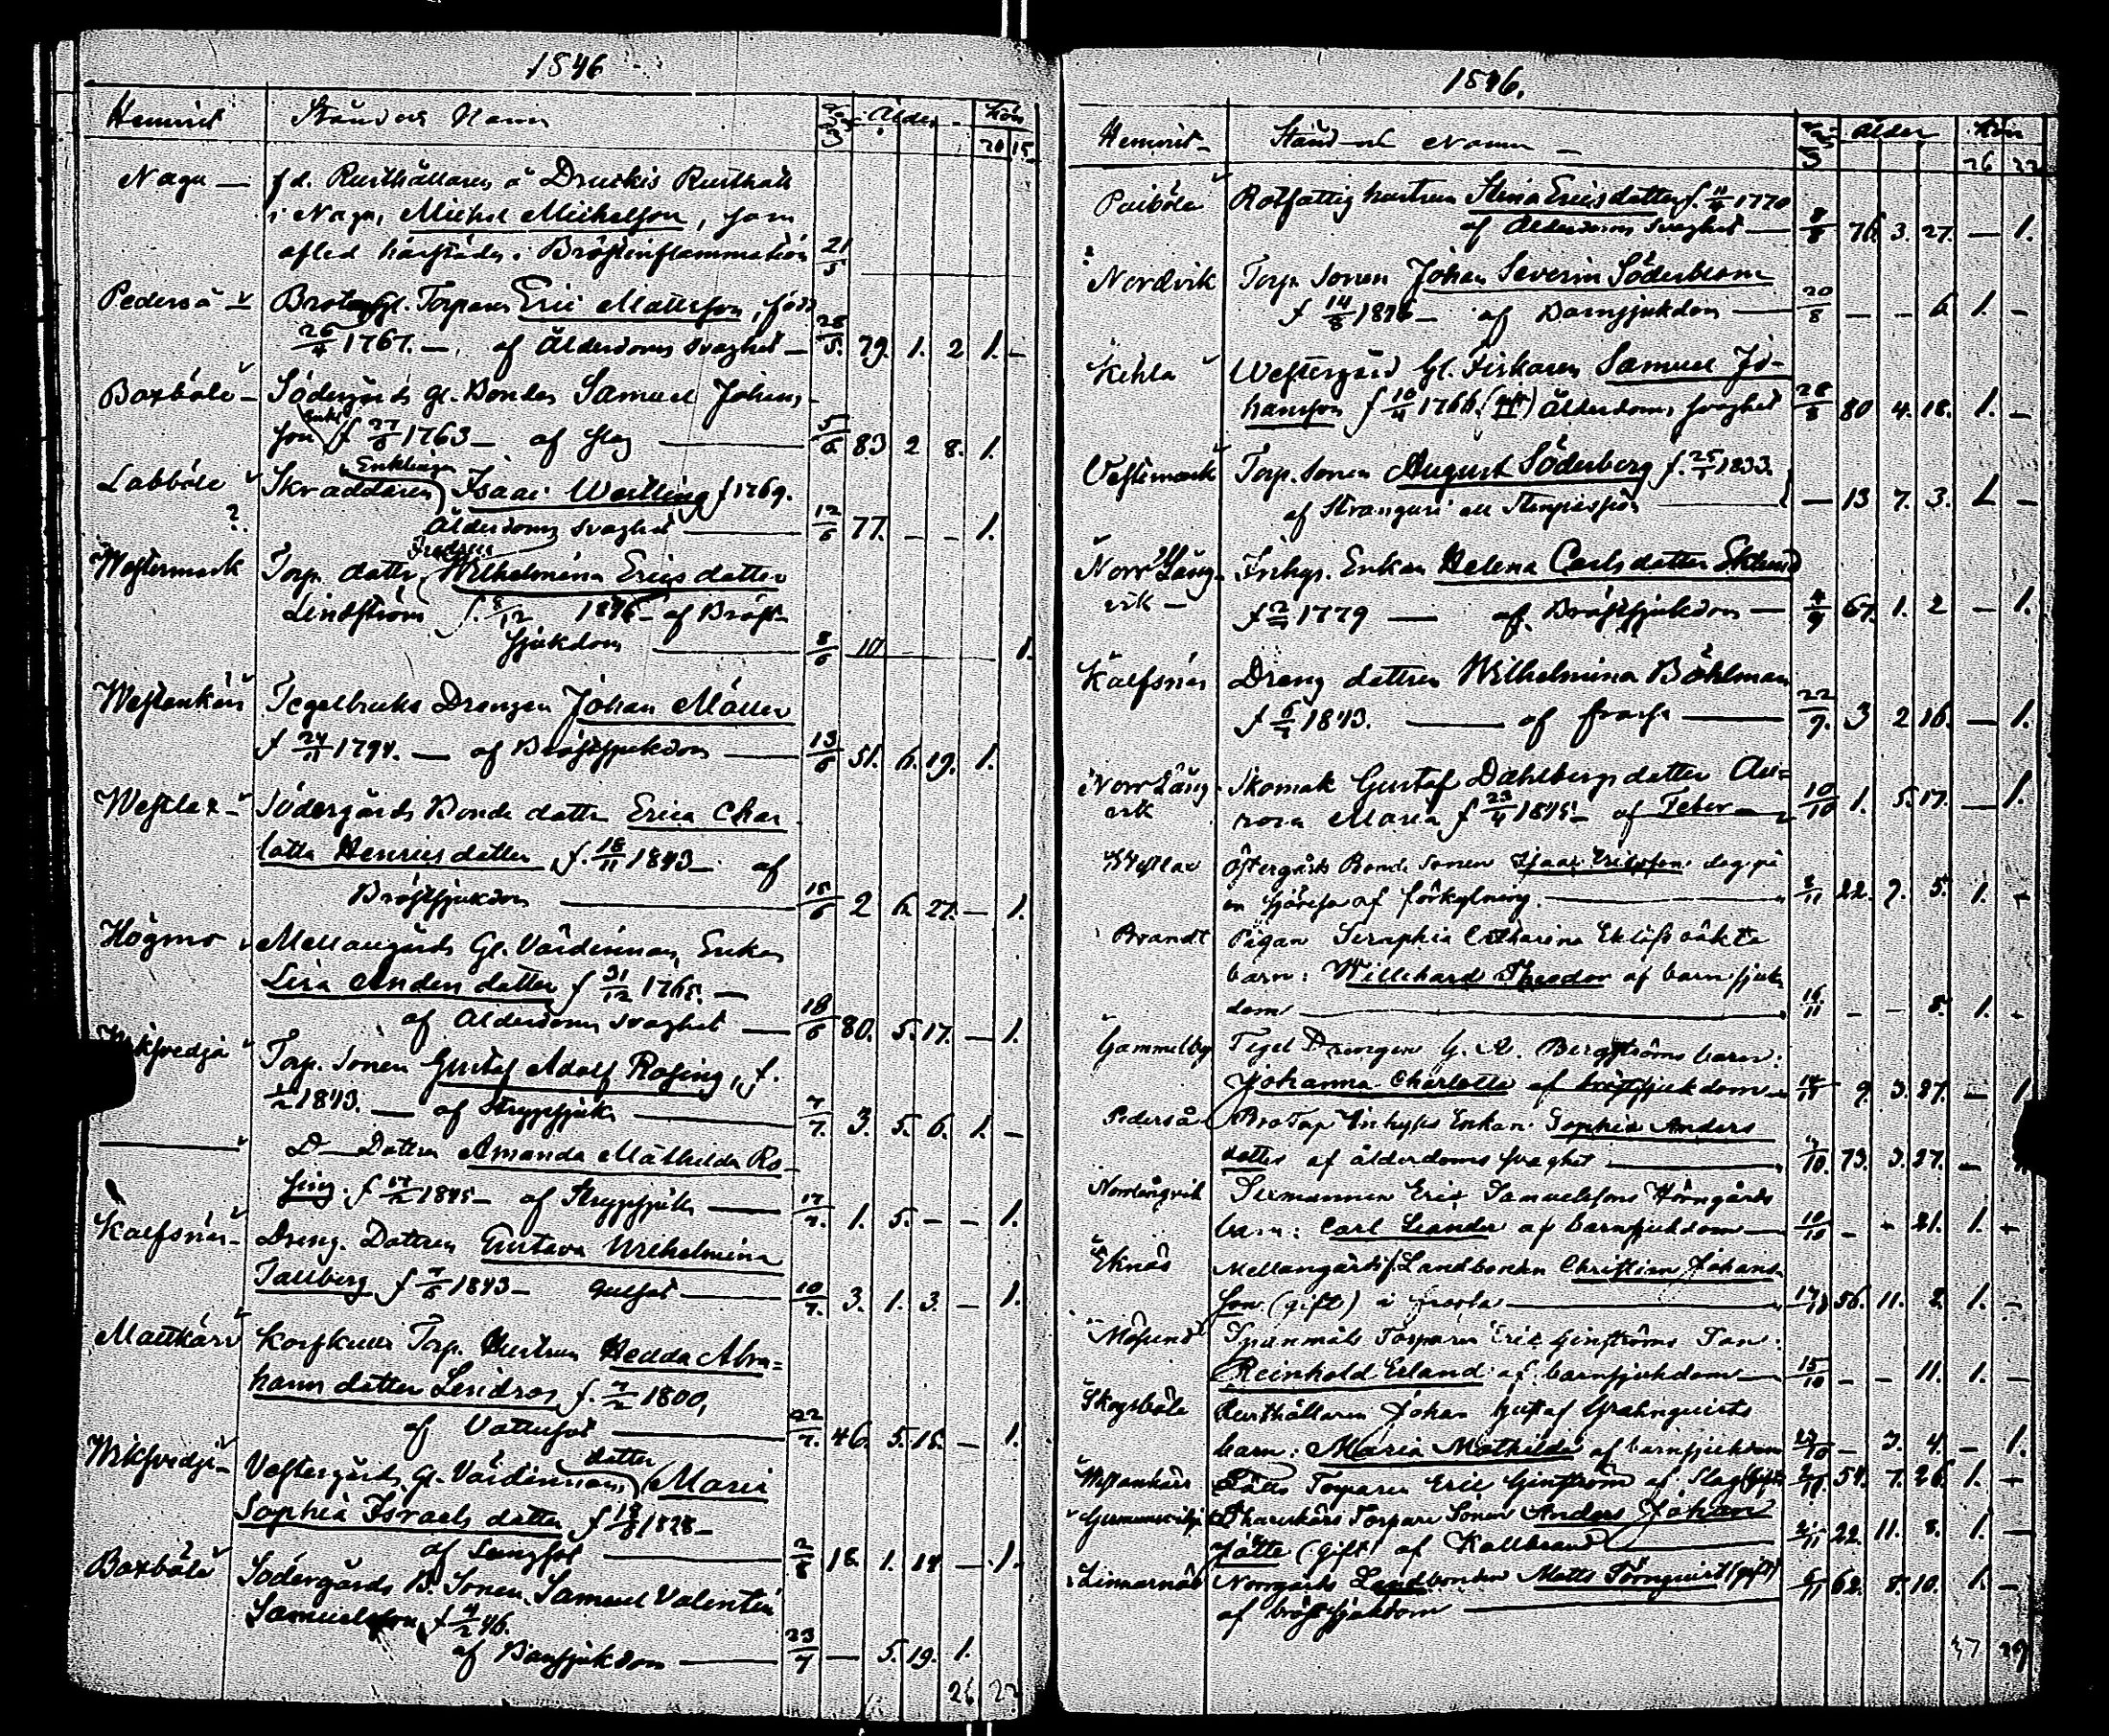 1846
Hemvist Stånd och Namn Ålder Kön
20 15
Nagu — fd. Rusthållaren å Druckis Rusthåll
i Nagu, Michel Michelsson, som
afled härstädes. Bröstinflammation 21/5
Pederså — Bro Gl. Torparen Eric Mattsson, född
26/4 1767. — af Ålderdoms svaghet — 28/5. 79. 1. 2 1. —
Boxböle — Södergårds gl. Bonden Samuel Johans-
son enkl f 27/3 1763 — af slag — 5/6 83 2 8. 1.
Labböle Skräddaren Enklingen Isaac Westling f 1769.
? Ålderdoms svaghet — 12/6 77. — — 1.
Westermark Torp. dottr. Fredrica Wilhelmina Ericsdotter
Lindström f. 8/12 1845 — af Bröst-
sjukdom — 8/6 10 1.
Westankärr Tegelbruks Drängen Johan Möller
f 24/11 1794. — af Bröstsjukdom — 13/6 51. 6. 19. 1.
Westlax — Södergårds Bonde dottr Erica Char
lotta Henricsdotter f. 18/11 1843 — af
Bröstsjukdom — 15/6 2 6. 27. — 1.
Högmo Mellangårds Gl. Värdinnan, Enkan
Lisa Andersdotter f 31/12 1765. —
af Ålderdoms svaghet — 18/6 80. 5. 17. — 1.
Torp. sonen Gustaf Adolf Rosing, f.
1/2 1843. — af Strypsjuka — 7/7. 3. 5. 6. 1. —
— D— Dottren Amanda Mathilda Ro-
sing. f 17/2 1845 — af Strypsjuka — 17/7. 1. 5. — — 1.
Kalfsnäs — Dreng. Dottren Gustava Wilhelmina
Tallberg f 7/6 1843 — Gulsot — 10/7. 3. 1. 3. — 1.
Mattkärr Korskulla Torp. Hustrun Hedda Abra-
hams dotter Lindros f. 7/2 1800,
af Vattusot — 22/7. 46. 5. 15. — 1.
Wiksvedja — Vestergårds Gl. Värdinnans dotter Maria
Sophia Israels dotter f 19/6 1828 —
af Lungsot — 2/8 18. 1. 14. — 1.
Boxböle Södergårds B. Sonen Samuel Valentin
Samuelsson f 4/2 46.
af Barnsjukdom — 23/7 — 5. 19. 1.
26 22
1846.
Hemvist — Stånd och Namn — Ålder Kön
26 22
Paiböle Rotfattig hustrun Stina Ericsdotter f. 11/4 1770
af Ålderdoms svaghet — 8/8 76. 3. 27. — 1.
Nordvik Torp. Sonen Johan Severin Söderblom
f 14/8 1846 — af Barnsjukdom — 20/8 — — 6. 1. —
Kehla Westergård Gl. Fiskaren Samuel Jo-
hansson f 10/4 1766. Ålderdoms svaghet 28/8 80 4. 18. 1. —
Westermark Torp. Sonen August Söderberg f. 25/1 1833.
af Stranguri — — 13 7. 3. 1. —
Norr Lång-
vik — Inhys. Enkan Helena Carlsdotter Eklund
f 2/7 1779 — af Bröstsjukdom — 4/9 67. 1. 2 — 1.
Kalfsnäs Dreng dottren Wilhelmina Böhlman
f 6/7 1843. — af frossa — 22/9. 3 2 16. — 1.
Norr Lång-
vik Skomak Gustaf Dahlbergs dotter Au-
rora Maria f 23/4 1845 — af Feber — 10/10 1. 5. 17. — 1.
Westlax Östergårds Bonde Sonen Isaac Ericsson dog på
en sjöresa af förkylning. — 2/11 22. 7. 5. 1. —
Brandt Pigan Seraphia Catharina Eklöfs oäkta
barn: Willehard Theodor af barnsjuk
dom — 16/11 — — 8. 1. —
Gammelby Tegel Drengen G. A. Bergströms barn.
Johanna Charlotta af bröstsjukdom — 9. 3. 27. — 1.
Pederså Bro Torp Inhyses Enkan Sophia Anders
dotter af ålderdoms svaghet — 73. 3. 27. —
Nordingvik Eric Samuelssons Hörngårds
barn: Carl Leander af barnsjukdom — 10/10 — — 21. 1. —
Eknäs Mellangårds Landbonden Christian Johans-
son (gift) i frossa — 56. 11. 2. 1. —
Mosund Torparen Eric Ginströms Son:
Reinhold Erland af barnsjukdom — 15/10 — — 11. 1. —
Skogsböle Rusthållaren Johan Gustaf Grahnquists
barn: Maria Mathilda af barnsjukdom — 3. 4. — 1.
Westankärr Torparen Eric Ginström af Slag (gift) 54. 7. 26. 1. —
Torpare Sonen Anders Johan
Jätte (gift) af Kallbrand 22. 11. 8. 1. —
Linnarnäs Norrgårds Landbonden Matts Törnquist (gift)
af bröstsjukdom — 62. 8. 10. 1. —
47 29